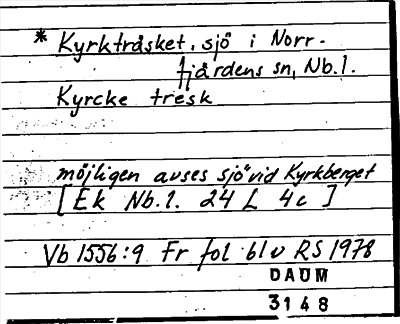 * Kyrkträsket, sjö i Norr-
fjärdens sn, Nb.l.
Kyrcke tresk
möjligen avses sjö vid Kyrkberget
[Ek Nb.l. 24 L 4c]
Vb 1556:9 Fr fol bl v RS 1978
DAUM
3148